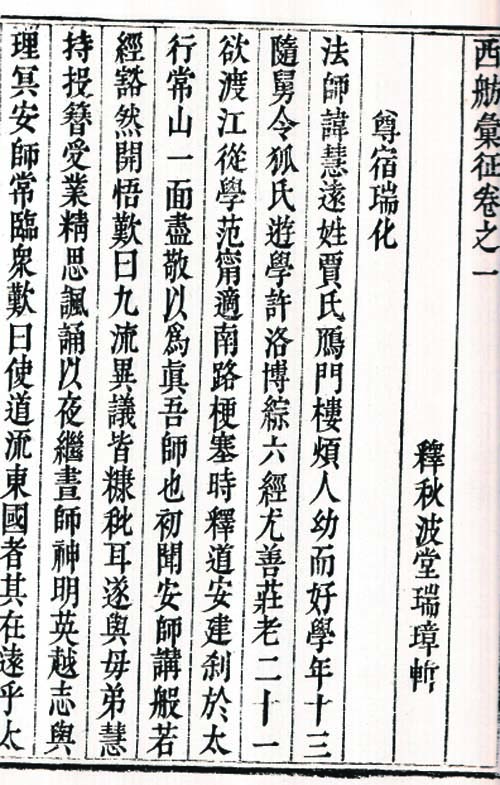 西舫彙征卷之一
釋秋波堂瑞璋輯
尊宿瑞化
法師諱慧遠姓賈氏鴈門樓煩人幼而好學年十三
隨舅令狐氏遊學許洛博綜六經尤善莊老二十一
欲渡江從學范甯適南路梗塞時釋道安建刹於太
行常山一面盡敬以爲眞吾師也初聞安師講般若
經豁然開悟歎曰九流異議皆糠秕耳遂與母弟慧
持投簪受業精思諷誦以夜繼晝師神明英越志與
理冥安師常臨衆歎曰使道流東國者其在遠乎太